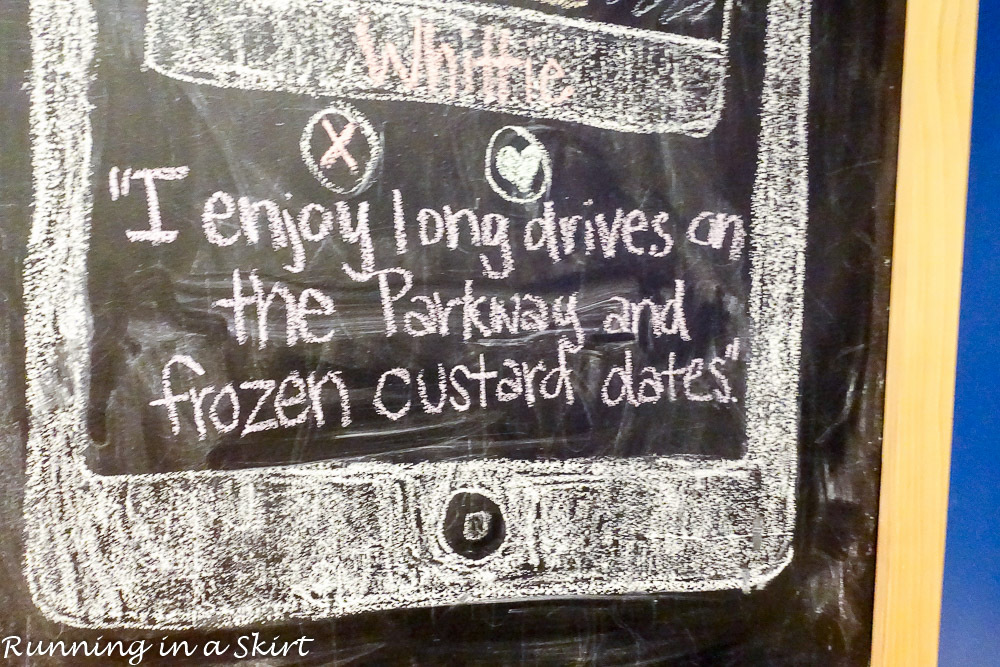 Whittie
X
"I enjoy long drives on
the Parkway and
frozen custard dates".
Running in a Skirt